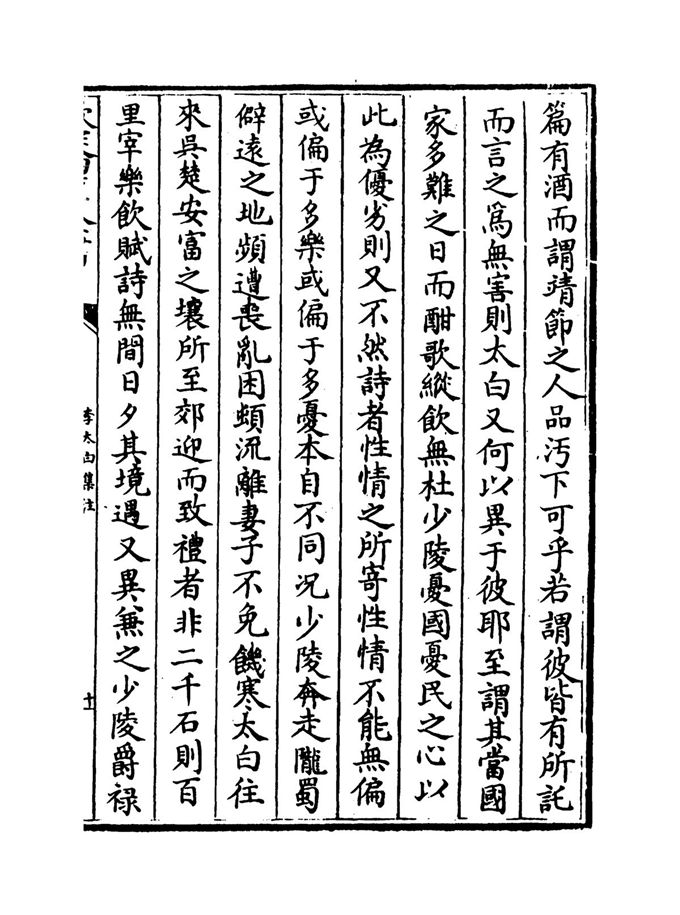 篇有酒而謂靖節之人品汚下可乎若謂彼皆有所託
而言之爲無害則太白又何以異于彼耶至謂其當國
家多難之日而酣歌縱飲無杜少陵憂國憂民之心以
此為優劣則又不然詩者性情之所寄性情不能無偏
或偏于多樂或偏于多憂本自不同况少陵奔走隴蜀
僻遠之地頻遭喪亂困頓流離妻子不免饑寒太白往
來呉楚安富之壤所至郊迎而致禮者非二千石則百
里宰樂飲賦詩無間日夕其境遇又異兼之少陵爵祿
李太白集注
十一